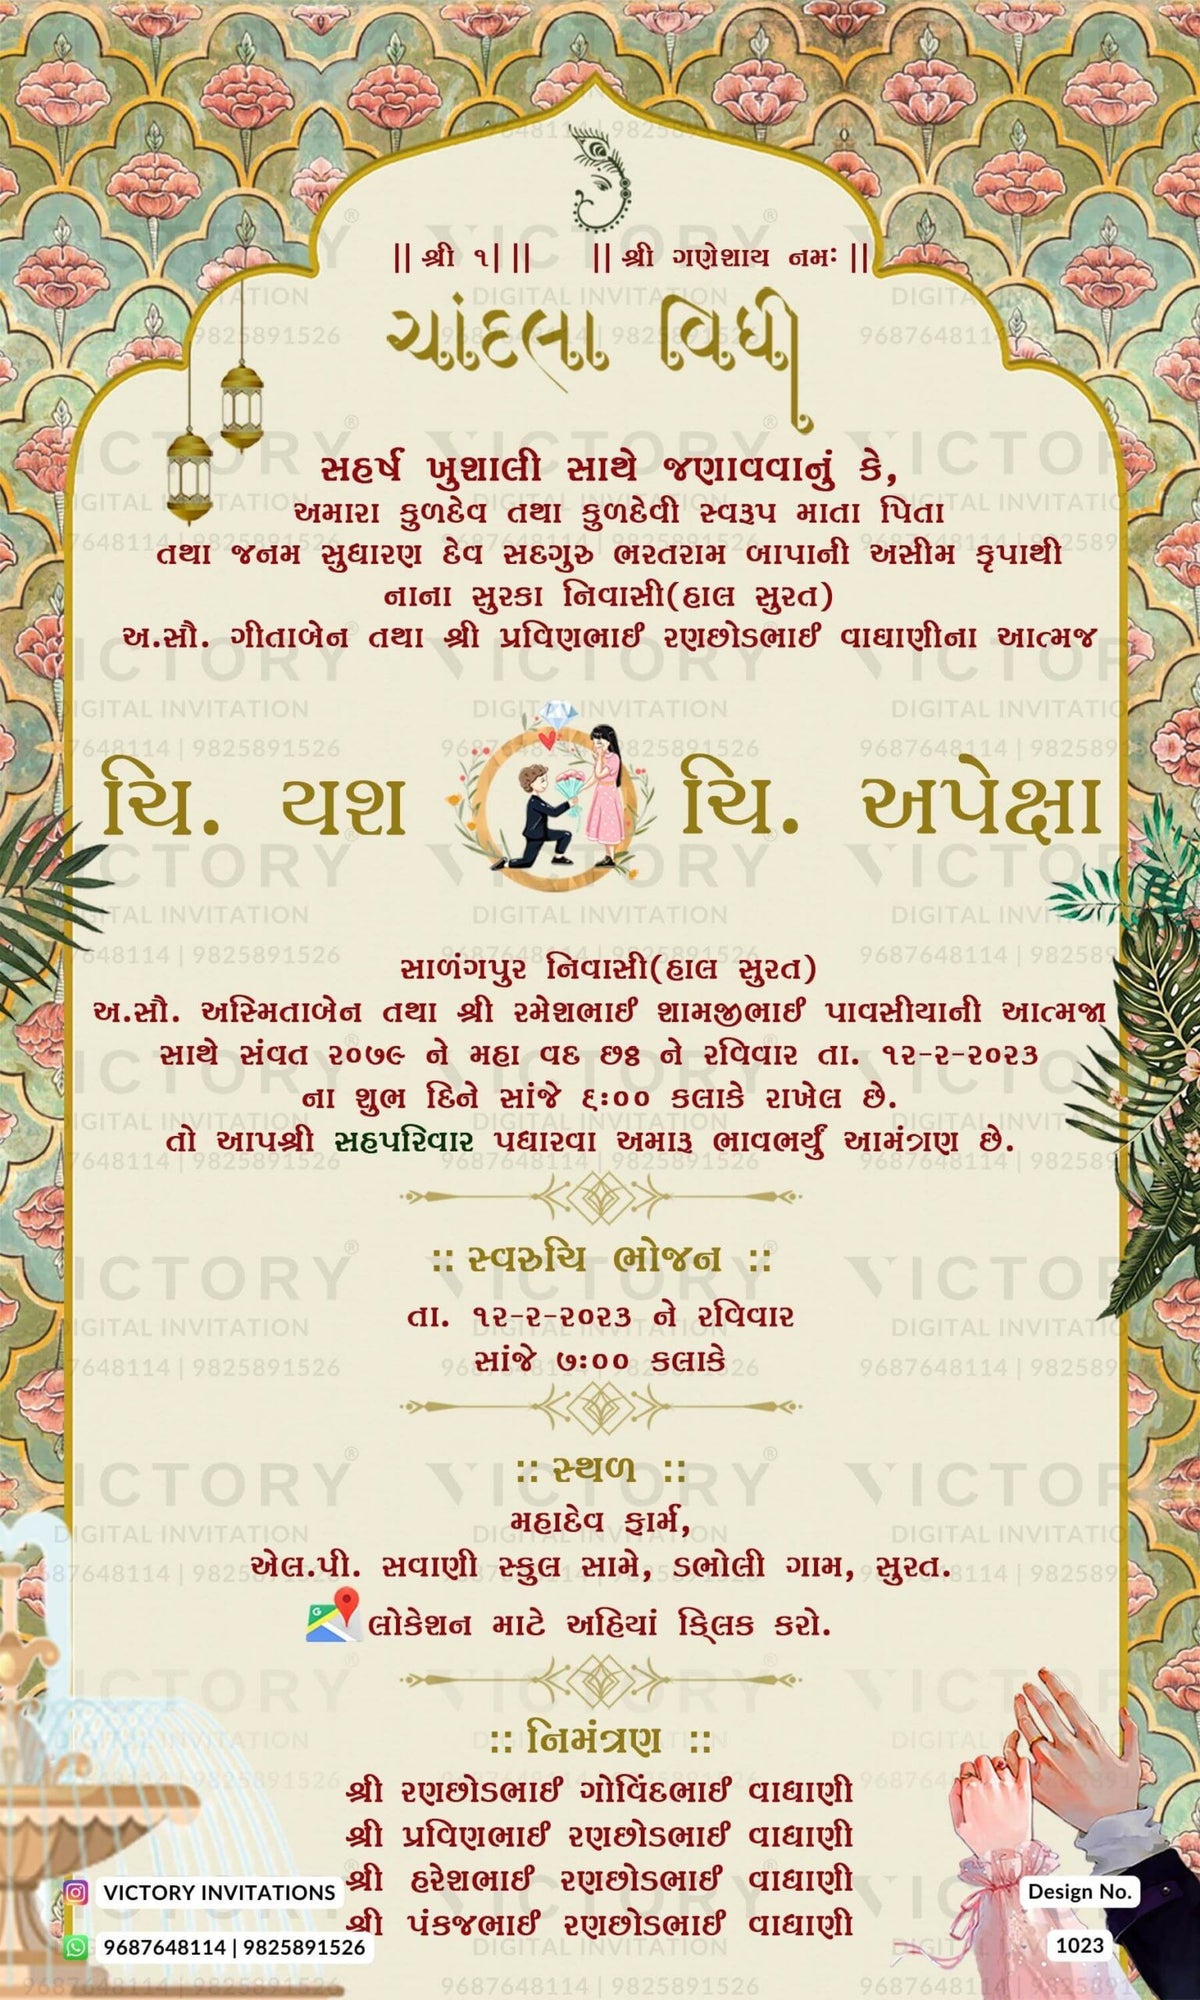 || શ્રી ૧| || || શ્રી ગણેશાય નમઃ ||
ચાંદલા વિધી
સહર્ષ ખુશાલી સાથે જણાવવાનું કે,
અમારા કુળદેવ તથા કુળદેવી સ્વરૂપ માતા પિતા
તથા જનમ સુધારણ દેવ સદગુરુ ભરતરામ બાપાની અસીમ કૃપાથી
નાના સુરકા નિવાસી(હાલ સુરત)
અ.સૌ. ગીતાબેન તથા શ્રી પ્રવિણભાઈ રણછોડભાઈ વાઘાણીના આત્મજ
ચિ. યશ ચિ. અપેક્ષા
સાળંગપુર નિવાસી(હાલ સુરત)
અ.સૌ. અસ્મિતાબેન તથા શ્રી રમેશભાઈ શામજીભાઈ પાવસીયાની આત્મજા
સાથે સંવત ૨૦૭૯ ને મહા વદ છઠ્ઠ ને રવિવાર તા. ૧૨-૨-૨૦૨૩
ના શુભ દિને સાંજે ૬:૦૦ કલાકે રાખેલ છે.
તો આપશ્રી સહપરિવાર પધારવા અમારૂ ભાવભર્યું આમંત્રણ છે.
:: સ્વરુચિ ભોજન ::
તા. ૧૨-૨-૨૦૨૩ ને રવિવાર
સાંજે ૭:૦૦ કલાકે
:: સ્થળ ::
મહાદેવ ફાર્મ,
એલ.પી. સવાણી સ્કુલ સામે, ડભોલી ગામ, સુરત.
લોકેશન માટે અહિયાં ક્લિક કરો.
:: નિમંત્રણ ::
શ્રી રણછોડભાઈ ગોવિંદભાઈ વાઘાણી
શ્રી પ્રવિણભાઈ રણછોડભાઈ વાઘાણી
શ્રી હરેશભાઈ રણછોડભાઈ વાઘાણી
શ્રી પંકજભાઈ રણછોડભાઈ વાઘાણી
VICTORY INVITATIONS
9687648114 | 9825891526
Design No.
1023
VICTORY®
DIGITAL INVITATION
9687648114 | 9825891526